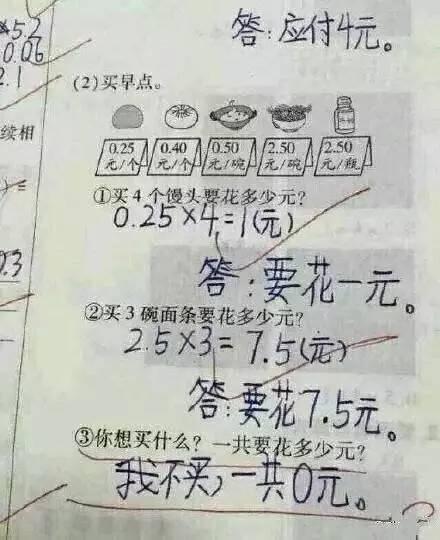 ×5.2
0.06
2.1
答:应付4元。
(2)买早点。
续相
0.25 元/个
0.40 元/个
0.50 元/碗
2.50 元/碗
2.50 元/瓶
①买4个馒头要花多少元?
0.25×4=1(元)
0.3
答:要花一元。
②买3碗面条要花多少元?
2.5×3=7.5(元)
答:要花7.5元。
③你想买什么?一共要花多少元?
我不买,一共0元。
?